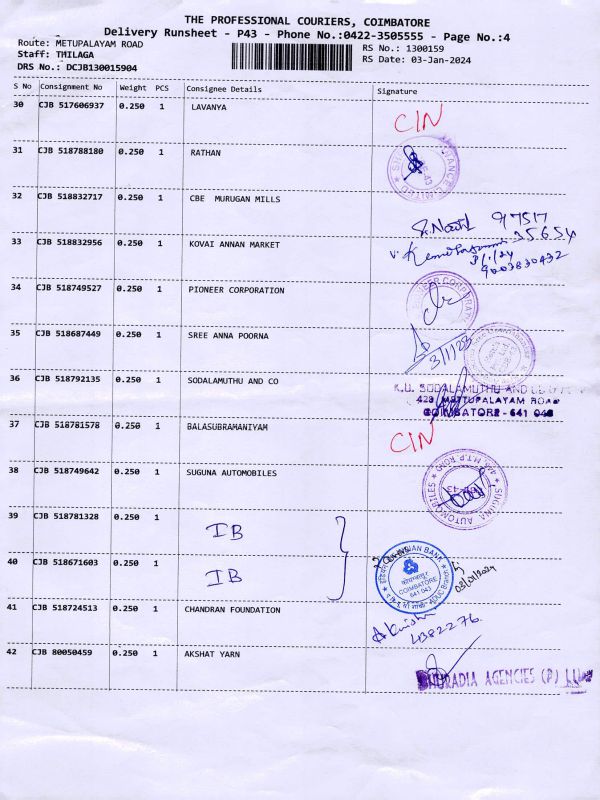 THE PROFESSIONAL COURIERS, COIMBATORE
Delivery Runsheet - P43 - Phone No.:0422-3505555 - Page No.:4
Route: METUPALAYAM ROAD
RS No.: 1300159
Staff: THILAGA
RS Date: 03-Jan-2024
DRS No.: DCJB130015904
S No Consignment No Weight PCS Consignee Details Signature
30 CJB 517606937 0.250 1 LAVANYA CIN
31 CJB 518788180 0.250 1 RATHAN
32 CJB 518832717 0.250 1 CBE MURUGAN MILLS 97517
35654
33 CJB 518832956 0.250 1 KOVAI ANNAN MARKET 3/1/24
9003830432
34 CJB 518749527 0.250 1 PIONEER CORPORATION
PIONEER CORPORATION
35 CJB 518687449 0.250 1 SREE ANNA POORNA 3/1/23
36 CJB 518792135 0.250 1 SODALAMUTHU AND CO K.U. SODALAMUTHU AND CO
METTUPALAYAM ROAD
COIMBATORE - 641 043
37 CJB 518781578 0.250 1 BALASUBRAMANIYAM CIN
38 CJB 518749642 0.250 1 SUGUNA AUTOMOBILES
SUGUNA AUTOMOBILES
39 CJB 518781328 0.250 1 IB
INDIAN BANK
COIMBATORE
641 043
40 CJB 518671603 0.250 1 IB
03/01/2024
41 CJB 518724513 0.250 1 CHANDRAN FOUNDATION
4382276
42 CJB 80050459 0.250 1 AKSHAT YARN
AGENCIES (P)